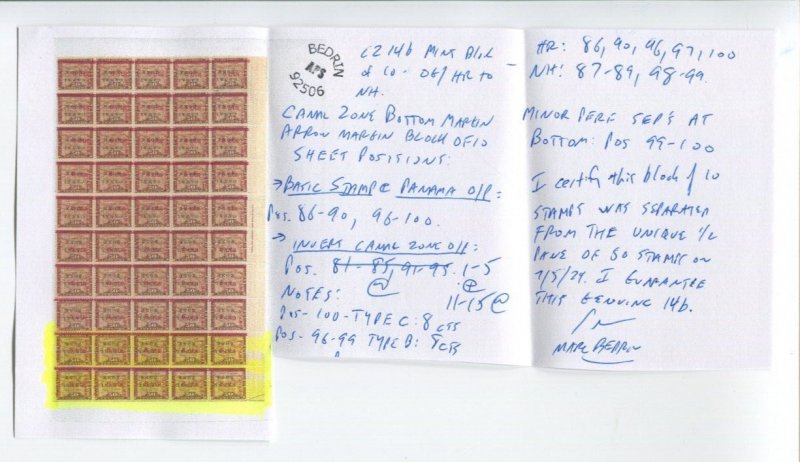 BEDRIN
APS
92506
CZ 14b MINT BLK
of 10 - OG/HR to
NH.
CANAL ZONE BOTTOM MARGIN
ARROW MARGIN BLOCK OF 10
SHEET POSITIONS:
→ BASIC STAMP & PANAMA O/P:
Pos. 86-90, 96-100.
→ INVERT CANAL ZONE O/P:
Pos. 81-85, 91-95. 1-5
@ @
NOTES: 11-15 @
Pos- 100-TYPE C: 8 cts
Pos- 96-99 TYPE B: 8 cts
HR: 86, 90, 96, 97, 100
NH: 87-89, 98-99.
MINOR PERF SEP'S AT
BOTTOM: POS 99-100
I certify this block of 10
STAMPS WAS SEPARATED
FROM THE UNIQUE 1/2
PANE OF 50 STAMPS ON
7/5/24. I GUARANTEE
THIS GENUINE 14b.
MARC BEDRIN